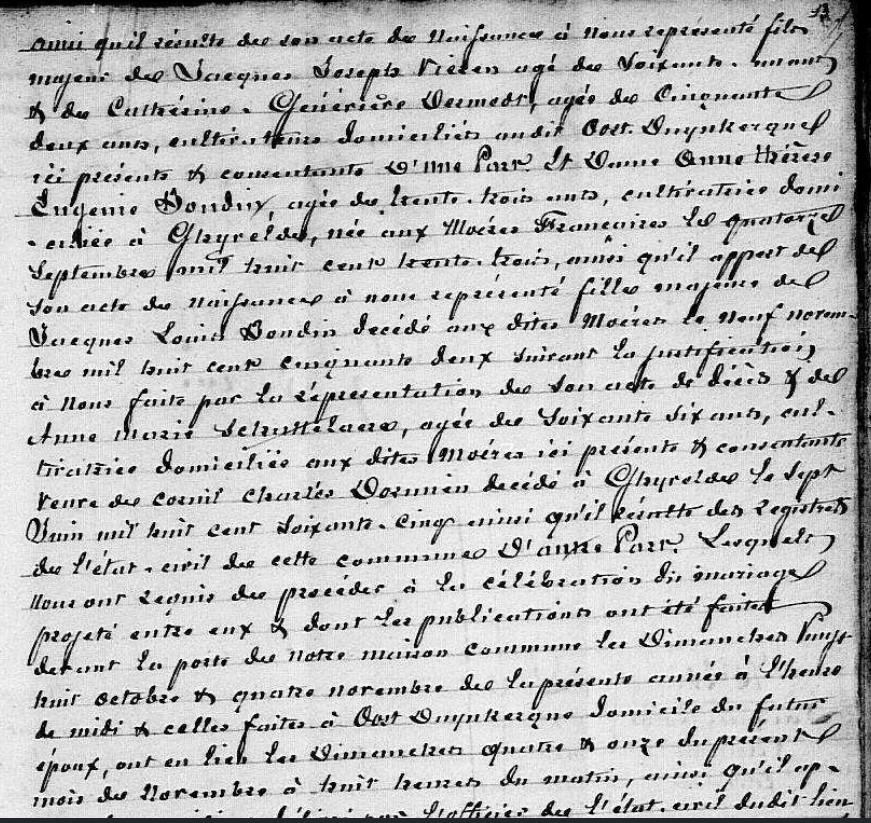 ainsi qu'il résulte de son acte de Naissance à nous représenté fils
majeur de Jacques Joseph Vieren agé de Soixante- un ans
& de Cathérine- Généviève Dermedt, agée de Cinquante
deux ans, cultivateurs domiciliés audit Oost. Duynkerque
ici présents & consentants D'une Part. Et Dame Anne thérèse
Eugenie Bondin agée de trente-trois ans, cultivatrice domi
-ciliée à Ghyvelde, née aux Moëres Françaises le quatorze
Septembre mil huit cent trente-trois, ainsi qu'il appert de
Son acte de Naissance à nous représenté fille majeure de
Jacques Louis Bondin décédé aux dites Moëres le neuf novem-
bre mil huit cent cinquante deux suivant la justification
à nous faite par la réprésentation de son acte de décès & de
Anne Marie Schuttelaere, agée de Soixante six ans, cul-
tivatrice domiciliée aux dites Moëres ici présente & consentante
Veuve de cornil charles Dormien décédé à Ghyvelde le Sept
Juin mil huit cent Soixante-cinq ainsi qu'il résulte des registres
de l'état-civil de cette commune D'autre Part. Lesquels
Nous ont requis de procéder à la célébration du mariage
projeté entre eux & dont les publications ont été faites
devant la porte de notre maison commune les Dimanches Vingt
huit octobre & quatre novembre de la présente année à l'heure
de midi & celles faites à Oost Duynkerque domicile du futur
époux, ont eu lieu les Dimanches quatre & onze du présent
mois de Novembre à huit heures du matin, ainsi qu'il ap-
l'officier de l'état-civil dudit lieu